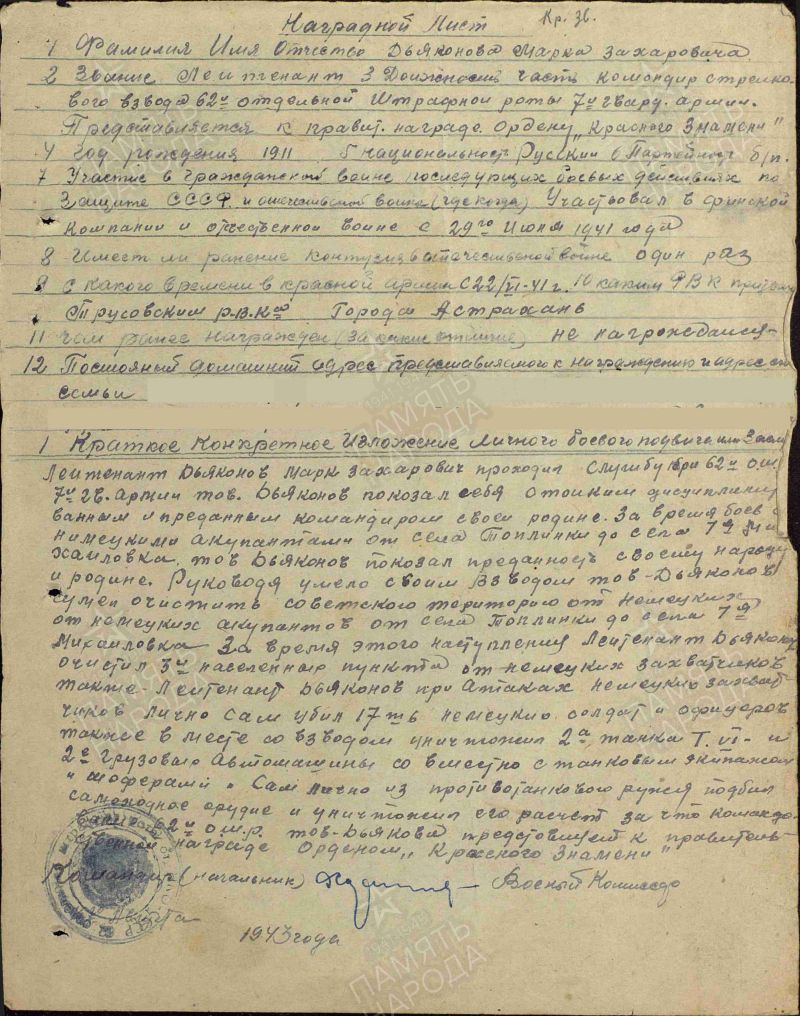 Наградной Лист Кр. Зв.
1 Фамилия Имя Отчество Дьяконова Марка Захаровича
2 Звание Лейтенант 3 Должность часть командир стрелко-
вого взвода 62й отдельной Штрафной роты 7й гвард. армии.
Представляется к правит. награде. Ордену „Красного Знамени"
4 Год рождения 1911 5 национальность Русский 6 Партейность б/п.
7 Участие в гражданской воине последующих боевых действиях по
Защите СССР и отечественной воине (где когда) Участвовал в финской
Компании и отчественной воине с 29го Июня 1941 года
8 Имеет ли ранение контузия в отачественой воине один раз
9 с какого времени в красной армии с 22/VI-41 г. 10 каким РВК
Трусовским р.в.К Города Астрахань
11 Чем ранее награжден (за какие отличие) не награждался-
12 Постояный домашний адрес представляемого к награждению и адрес его
семьи
1 Краткое Конкретное Изложение личного боевого подвига или
Лейтенант Дьяконов Марк Захарович проходил службу при 62й ош
7й гв. Армии тов. Дьяконов показал себя стойким дисциплини
ванным и преданным командиром своей родине. За время боев с
немецкими акупантами от села Топлинки до села 7я Ми
хаиловка тов Дьяконов показал преданность своему народу
и родине. Руководя умело своим Взводом тов-Дьяконов
сумел очистить советского територию от немецких
от немецких акупантов от села Топлинки до села 7я
Михаиловка За время этого наступления Лейтенант Дьяконов
очистил 3и населенных пункта от немецких захватчиков
также- Лейтенант Дьяконов при Атаках немецких захват
чиков лично сам убил 17ть немецких солдат и офицеров
также вместе со взводом уничтожил 2а танка Т. VI- и
2е Грузовых Автомашины со вместно с танковым экипажем
и шоферами. Сам лично из противотанкового ружя подбил
самоходное орудие и уничтожил его расчет за что командо-
вание 62й о.ш.р. тов-Дьякова представляет к правитель-
ственной награде Орденом „Красного Знамени"
Командир (начальник) Военый Комиссар
Августа
1943 года
ПАМЯТЬ
НАРОДА